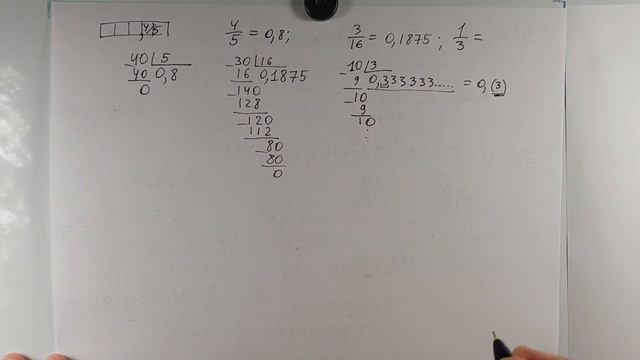 4/5
4/5 = 0,8; 3/16 = 0,1875; 1/3 =
40 | 5
40 0,8
0
30 | 16
16 0,1875
140
128
120
112
80
80
0
10 | 3
9 0,333333..... = 0,(3)
10
9
10
⋮